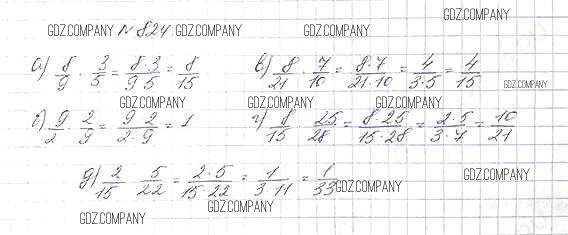 GDZ.COMPANY № 824 GDZ.COMPANY GDZ.COMPANY GDZ.COMPANY
а) 8/9 · 3/5 = 8·3/9·5 = 8/15 в) 8/21 · 7/10 = 8·7/21·10 = 4/3·5 = 4/15
GDZ.COMPANY GDZ.COMPANY GDZ.COMPANY
б) 9/2 · 2/9 = 9·2/2·9 = 1 г) 8/15 · 25/28 = 8·25/15·28 = 2·5/3·7 = 10/21
GDZ.COMPANY GDZ.COMPANY
д) 2/15 · 5/22 = 2·5/15·22 = 1/3·11 = 1/33
GDZ.COMPANY GDZ.COMPANY
GDZ.COMPANY GDZ.COMPANY